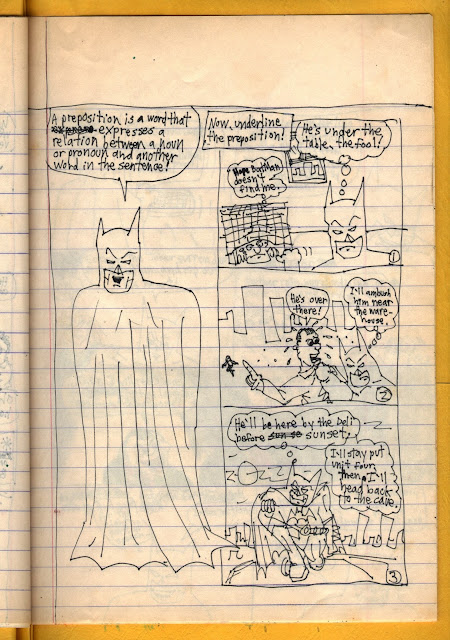 A preposition is a word that
expresses a
relation between a noun
or pronoun and another
word in the sentence!
Now, underline
the preposition!
He's under the
table, the fool!
Hope BatMan
doesn't
find me.
1
He's over
there!
I'll ambush
him near
the ware-
house.
2
He'll be here by the Deli
before sunset.
I'll stay put
unit four,
then I'll
head back
to the cave.
3